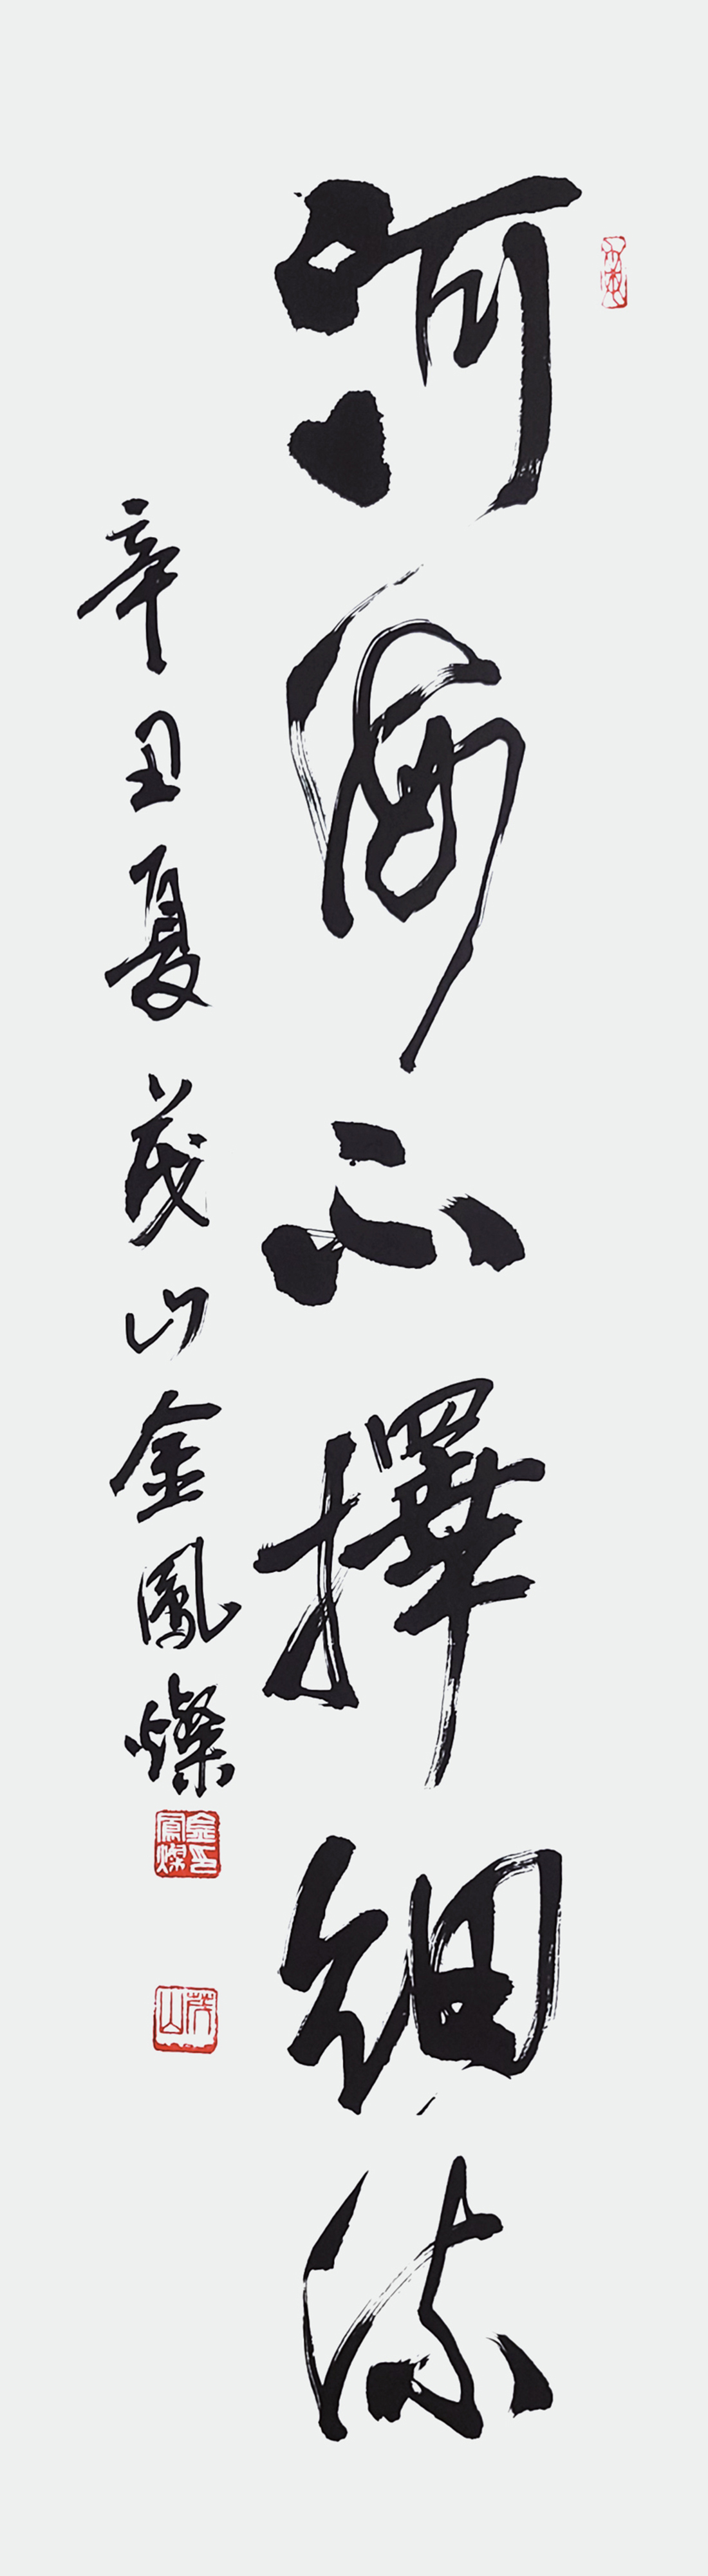 河海不擇細流
辛丑夏茂山金鳳燦
金鳳燦印
茂山